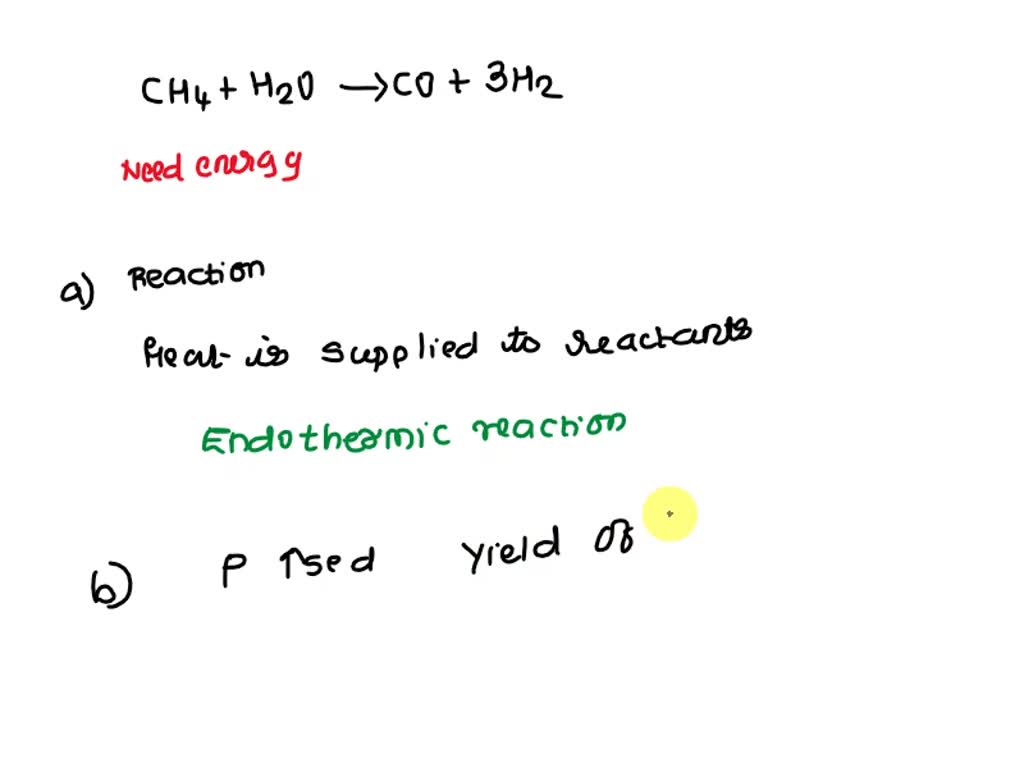 CH4 + H2O → CO + 3H2
Need energy
a) Reaction
Heat is supplied to reactants
Endothermic reaction
b) P ↑sed yield of